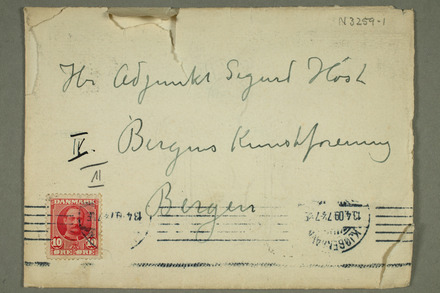 N 3259-1
Hr Adjunkt Sigurd Høst
IV.
Bergens Kunstforening
II
Bergen
DANMARK
10 10
ØRE ØRE
13.4.09.7-
KJØBENHAVN